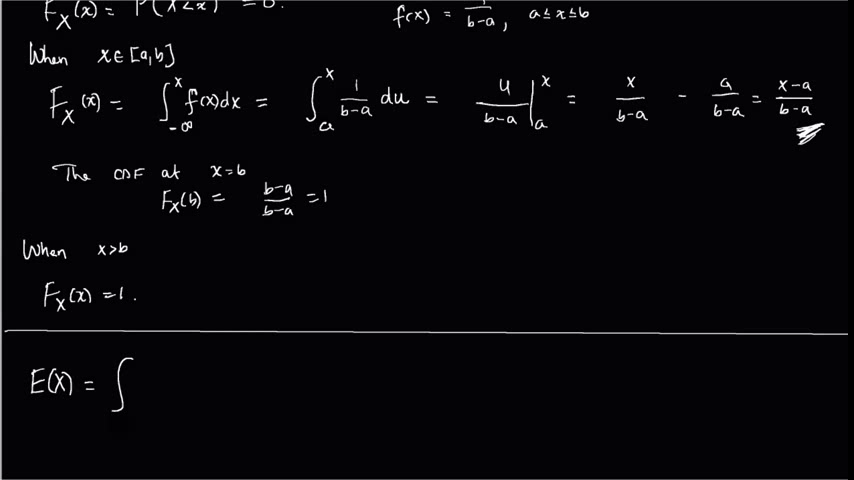 F_X(x) = P(X<x) = 0.
f(x) = 1/(b-a), a ≤ x ≤ b
When x ∈ [a,b]
F_X(x) = ∫_{-∞}^{x} f(x)dx = ∫_a^x 1/(b-a) du = u/(b-a) |_a^x = x/(b-a) - a/(b-a) = (x-a)/(b-a)
The CDF at x=b
F_X(b) = (b-a)/(b-a) = 1
When x>b
F_X(x) = 1.
E(X) = ∫